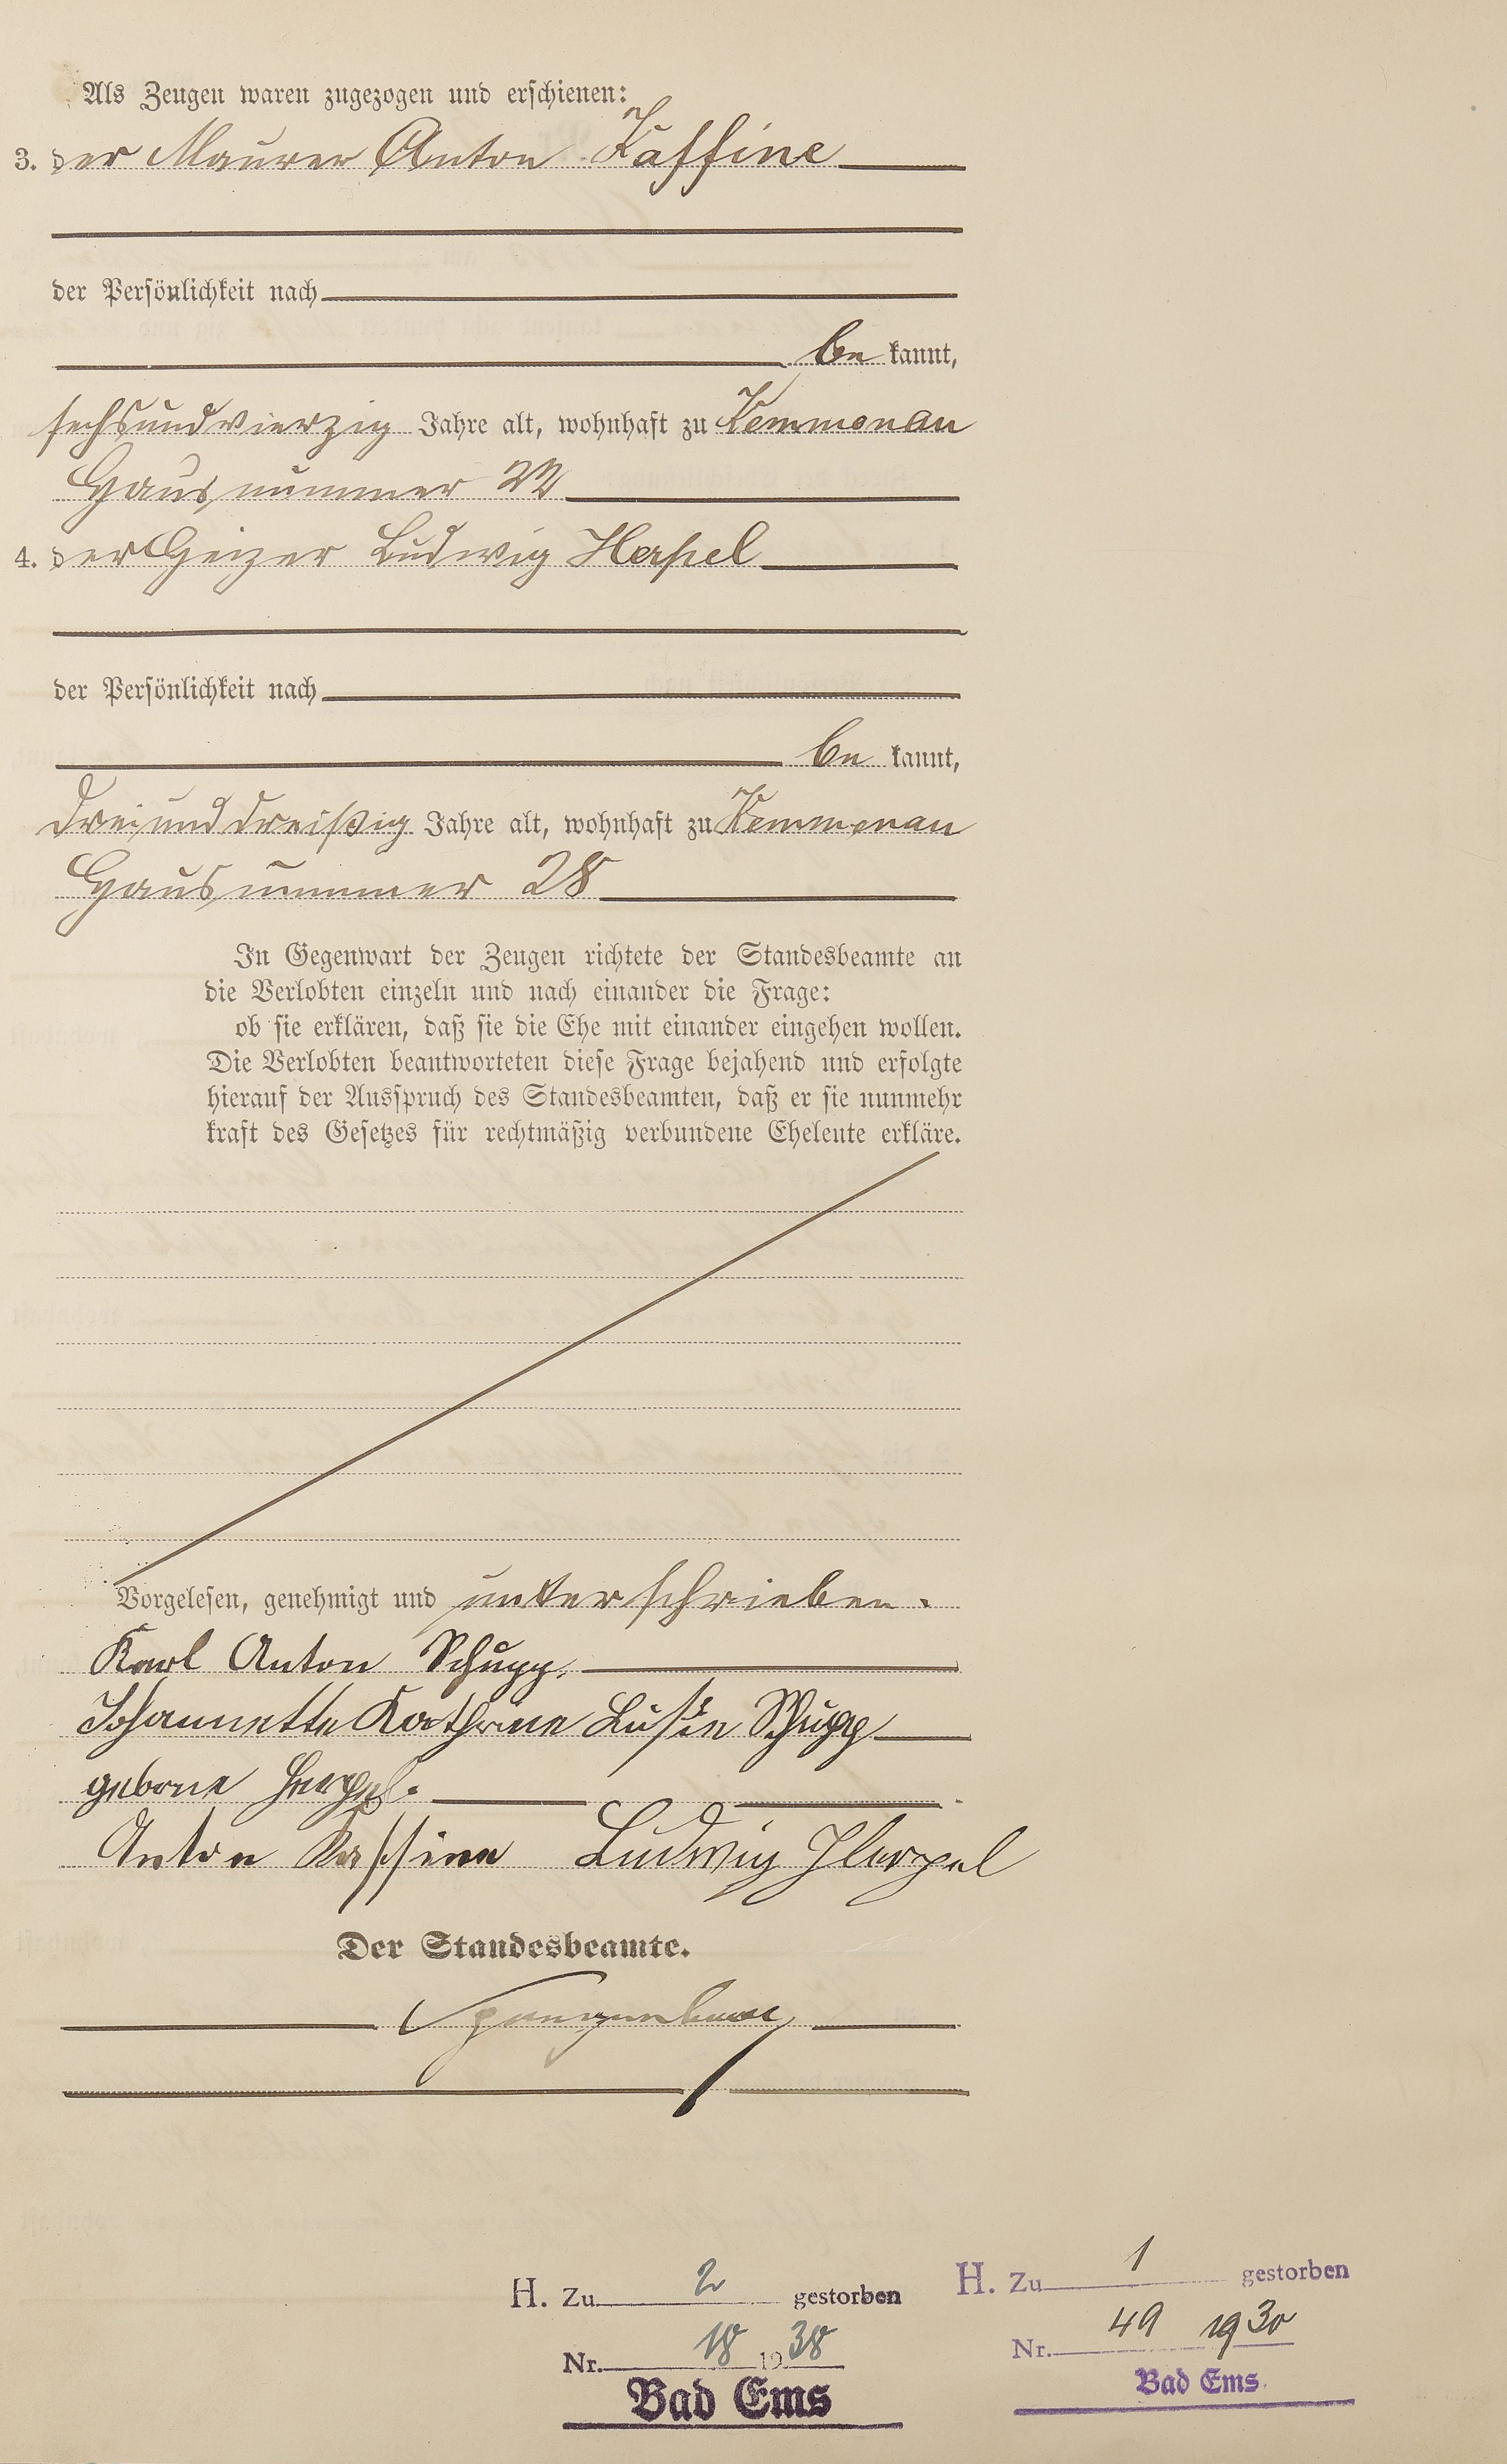 Als Zeugen waren zugezogen und erschienen:
3. der Maurer Anton Kaffine
der Persönlichkeit nach
be kannt,
sechsundvierzig Jahre alt, wohnhaft zu Kemmenau
Hausnummer 22
4. der Heizer Ludwig Herpel
der Persönlichkeit nach
be kannt,
dreiunddreißig Jahre alt, wohnhaft zu Kemmenau
Hausnummer 28
In Gegenwart der Zeugen richtete der Standesbeamte an
die Verlobten einzeln und nach einander die Frage:
ob sie erklären, daß sie die Ehe mit einander eingehen wollen.
Die Verlobten beantworteten diese Frage bejahend und erfolgte
hierauf der Ausspruch des Standesbeamten, daß er sie nunmehr
kraft des Gesetzes für rechtmäßig verbundene Eheleute erkläre.
Vorgelesen, genehmigt und unterschrieben.
Karl Anton Schupp.
Johannette Kathrine Luise Schupp
geborne Herpel.
Anton Kaffine Ludwig Herpel
Der Standesbeamte.
H. Zu 2 gestorben
Nr. 18 1938
Bad Ems
H. Zu 1 gestorben
Nr. 49 1930
Bad Ems.